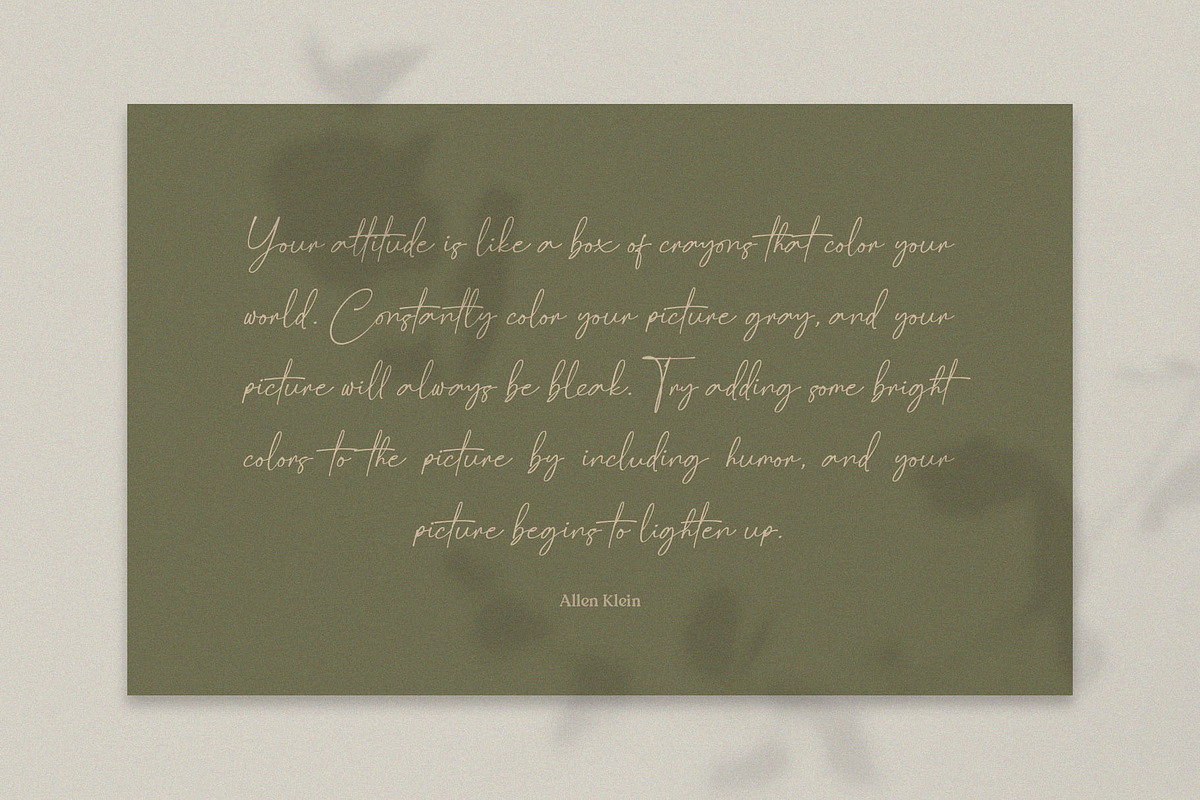 Your attitude is like a box of crayons that color your
world. Constantly color your picture gray, and your
picture will always be bleak. Try adding some bright
colors to the picture by including humor, and your
picture begins to lighten up.
Allen Klein